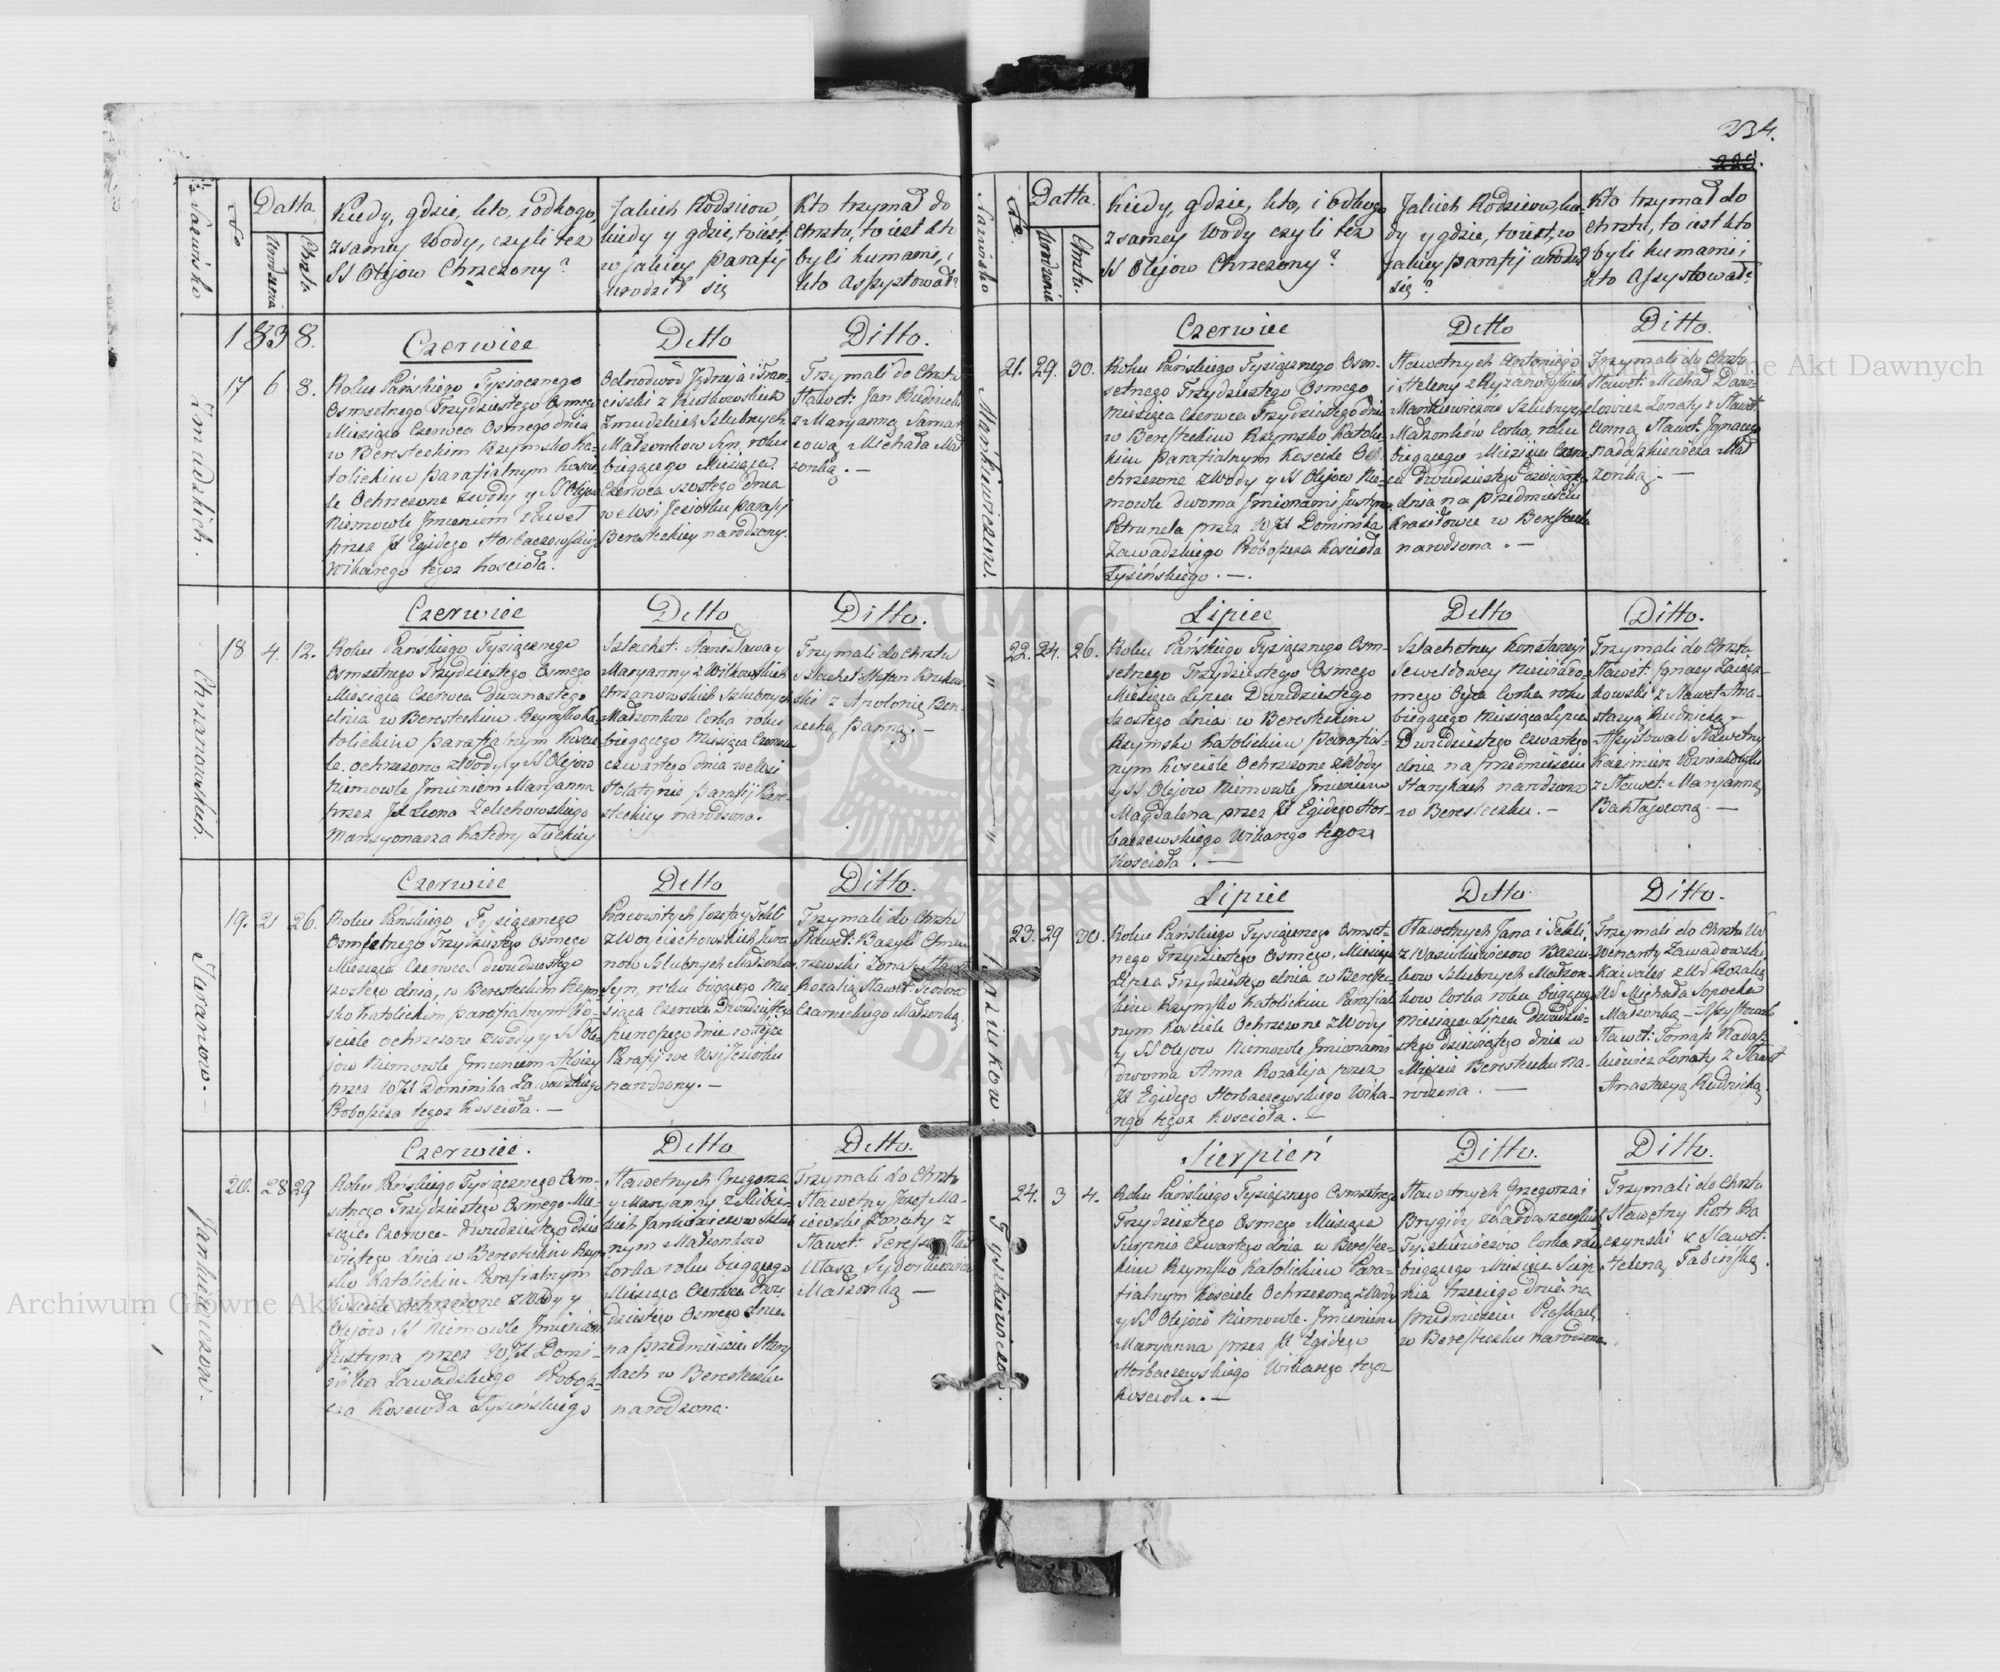 234.
225.
Nazwisko
No
Datta.
Urodzenia
Chrztu
Kiedy, gdzie, kto, i od kogo,
z samey wody, czyli też
SS Olejow Chrzczony?
Jakich Rodzicow,
kiedy y gdzie, to iest,
w jakiey parafij
urodził się
Kto trzymał do
Chrztu, to iest kto
byli kumami, i
kto assystował?
1838.
Czerwiec
Detto
Ditto.
17 6 8.
Żmudzkich.
Roku Pańskiego Tysiącznego
Osmsetnego Trzydziestego Osmego
Miesiąca Czerwca Osmego dnia
w Beresteckim Rzymsko Ka-
tolickim parafialnym Koscie-
le Ochrzczone z wody y SS Olejow
Niemowle Imieniem Paweł
przez JX Egidego Horbaczewskiego
Wikarego tegoż Kościoła.
Ciszki z Rutkowskich
Żmudzkich Szlubnych
Małżonkow Syn, roku
bieżącego Miesiąca
Czerwca szostego dnia
we Wsi Jeziorku parafij
Beresteckiey narodzony.
Trzymali do Chrztu
Sławet: Jan Rudnicki
z Maryanną
Michała Mał-
żonką. —
Czerwiec
Detto
Ditto.
18 4. 12.
Chrzanowskich.
Roku Pańskiego Tysiącznego
Osmsetnego Trzydziestego Osmego
Miesiąca Czerwca Dwunastego
dnia w Beresteckim Rzymsko Ka-
tolickim parafialnym Koscie-
le ochrzczono z Wody y SS Olejow
Niemowle Imieniem Maryanna
przez JX Leona Zelechowskiego
Mansyonarza Katedry Łuckiey
Szlachet: Stanisława y
Maryanny z Witkowskich
Chrzanowskich Szlubnych
Małżonkow Corka roku
bieżącego Miesiąca Czerwca
czwartego dnia we Wsi
Hołatynie parafij Bere-
steckiey narodzona.
Trzymali do Chrztu
Szlachet: Stefan Krukow-
ski z Apolonią Ben-
Panną. —
Czerwiec
Detto
Ditto.
19. 21 26.
Roku Pańskiego Tysiącznego
Osmsetnego Trzydziestego Osmego
Miesiąca Czerwca dwudziestego
szostego dnia, w Beresteckim Rzym-
sko Katolickim parafialnym Ko-
sciele ochrzczone z wody y SS Ole-
jow Niemowle Imieniem Aloizy
przez WJX Dominika Zawadzkiego
Proboszcza tegoż Kościoła. —
Pracowitych Jozefa y Tekli
z Woyciechowskich
Szlubnych Małżonkow
Syn, roku bieżącego Mie-
siąca Czerwca Dwudziestego
pierwszego dnia w teyże
Parafij we Wsi Jeziorku
narodzony. —
Trzymali do Chrztu
Sławet: Bazyli
Żonaty z Sławet:
Rozalią Sławet: Teodora
Czarneckiego Małżonką.
Czerwiec.
Detto
Detto.
20. 28 29
Jankiewiczow.
Roku Pańskiego Tysiącznego Osm-
setnego Trzydziestego Osmego Mie-
siąca Czerwca Dwudziestego dzie-
wiątego dnia w Beresteckim Rzym-
sko Katolickim Parafialnym
Kosciele ochrzczone z Wody y
Olejow SS Niemowle Imieniem
Justyna przez WJX Domi-
nika Zawadzkiego Probosz-
cza Kościoła Łysińskiego
Sławetnych Grzegorza
y Maryanny
Jankiewiczow Szlub-
nych Małżonkow
Corka roku bieżącego
Miesiąca Czerwca Dwu-
dziestego Osmego dnia
na przedmieściu Stary-
kach w Beresteczku
narodzona.
Trzymali do Chrztu
Sławetny Jozef Ma-
iewski Żonaty z
Sławet: Teressą Sław:
Małżonką —
Nazwisko
No.
Datta.
Urodzenia
Chrztu.
Kiedy, gdzie, kto, i od kogo
z samey Wody czyli też
SS Olejow Chrzczony?
Jakich Rodzicow, kie-
dy y gdzie, to iest, w
jakiey parafij urodził
się?
Kto trzymał do
Chrztu, to iest kto
byli kumami i
kto Assystował?
Czerwiec
Detto
Ditto.
21. 29. 30.
Mańkiewiczow.
Roku Pańskiego Tysiącznego Osm-
setnego Trzydziestego Osmego
Miesiąca Czerwca Trzydziestego dnia
w Beresteckim Rzymsko Katolic-
kim parafialnym Kosciele O-
chrzczone z Wody y SS Olejow Nie-
mowle dwoma Imionami Justyna
Petrunela przez WJX Dominika
Zawadzkiego Proboszcza Kościoła
Łysińskiego. —
Sławetnych Antoniego
i Heleny z
Mańkiewiczow Szlubnych
Małżonków Corka, roku
bieżącego Miesiąca Czerw-
ca Dwudziestego dziewiątego
dnia na przedmieściu
w Beresteczku
narodzona. —
Trzymali do Chrztu
Sławet: Michał
Żonaty z Sławet:
Anną Sławet: Ignacego
Nadaszkiewicza Mał-
żonką. —
Lipiec
Detto
Ditto.
22. 24. 26.
Roku Pańskiego Tysiącznego Osm-
setnego Trzydziestego Osmego
Miesiąca Lipca Dwudziestego
szostego dnia w Beresteckim
Rzymsko Katolickim Parafial-
nym Kosciele Ochrzczone z Wody
y SS Olejow Niemowle Imieniem
Magdalena przez JX Egidego Hor-
baczewskiego Wikarego tegoż
Kościoła. —
Szlachetney Konstancyi
Niewiado-
mego Oyca Corka roku
bieżącego Miesiąca Lipca
Dwudziestego czwartego
dnia na przedmieściu
Starykach narodzona
w Beresteczku. —
Trzymali do Chrztu
Sławet: Ignacy
z Sławet: Ana-
stazyą Rudnicką —
Assystował Sławetny
Kazimierz
z Sławet: Maryanną
Lipiec
Detto
Ditto.
23. 29 30.
Baziukow
Roku Pańskiego Tysiącznego Osmset-
nego Trzydziestego Osmego, Miesiąca
Lipca Trzydziestego dnia w Bereste-
ckim Rzymsko Katolickim Parafial-
nym Kosciele Ochrzczone z Wody
y SS Olejow Niemowle Imionami
dwoma Anna Rozalija przez
JX Egidego Horbaczewskiego Wika-
rego tegoż Kościoła. —
Sławetnych Jana i Tekli,
z Wasilkiewiczow Baziu-
kow Szlubnych Małżon-
kow Corka roku bieżącego
Miesiąca Lipca Dwudzie-
stego dziewiątego dnia w
Mieście Beresteczku na-
rodzona. —
Trzymali do Chrztu W
Wenanty Zawadowski,
Kawaler z W Rozalią
W Michała Sopocka
Małżonką — Assystowali
Sławet: Tomasz Nadasz-
kiewicz Żonaty z Sławet:
Anastazyą Rudnicką.
Sierpień
Ditto.
Ditto.
24. 3 4.
Tyszkiewiczow.
Roku Pańskiego Tysiącznego Osmsetnego
Trzydziestego Osmego Miesiąca
Sierpnia Czwartego dnia w Bereste-
ckim Rzymsko Katolickim Para-
fialnym Kosciele Ochrzczona z Wody
y SS Olejow Niemowle Imieniem
Maryanna przez JX Egidego
Horbaczewskiego Wikarego tegoż
Kościoła. —
Sławetnych Grzegorza i
Brygidy
Tyszkiewiczów Corka roku
bieżącego Miesiąca Sierp-
nia trzeciego dnia na
przedmieściu
w Beresteczku narodzona.
Trzymali do Chrztu
Sławętny Piotr Ra-
czynski z Sławet:
Heleną
Archiwum Główne Akt Dawnych
Archiwum Główne Akt Dawnych